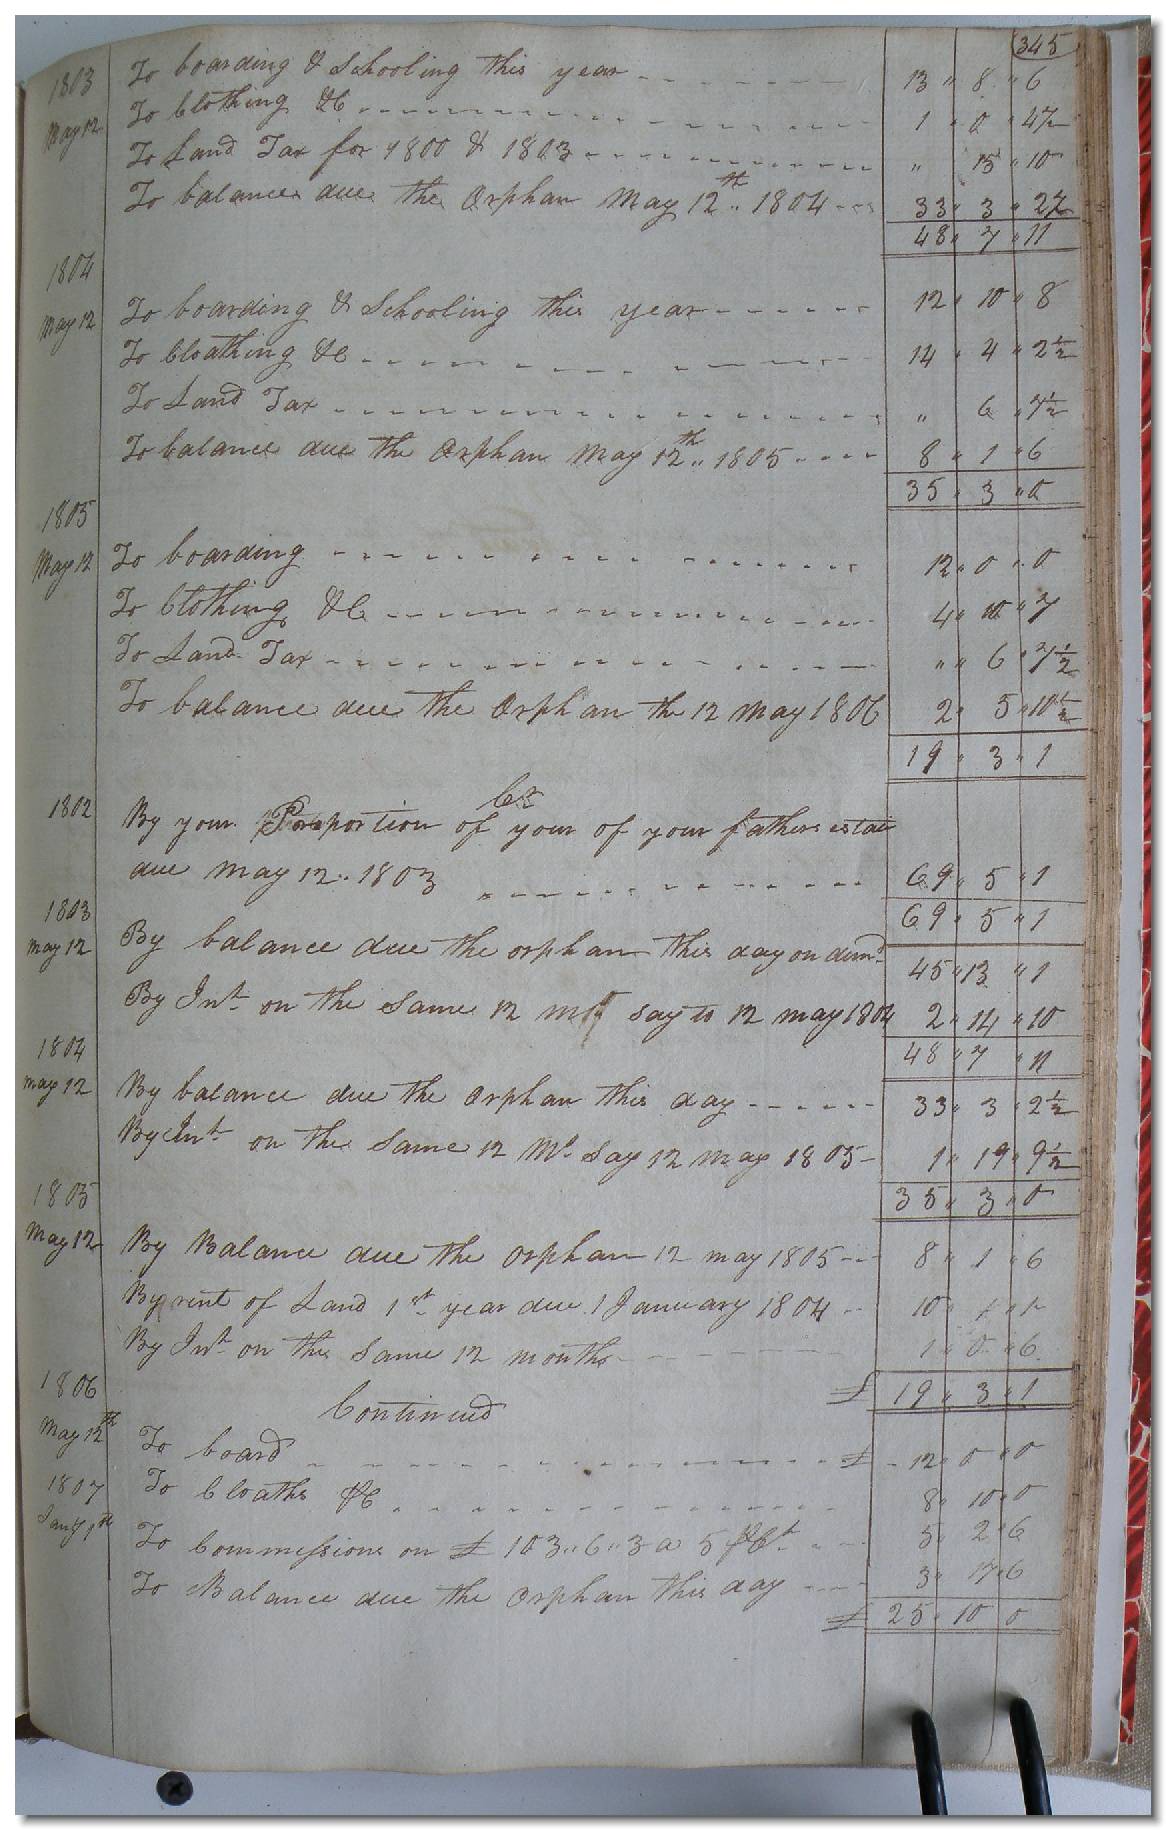 345
1803 To boarding & Schooling this year 13 " 8 " 6
May 12 To Clothing &C 1 " 0 " 4½
To Land Tax for 1800 & 1803 " 15 " 10
To balance due the Orphan May 12th .. 1804 33 " 3 " 2½
48 " 7 " 11
1804
May 12 To boarding & Schooling this year 12 " 10 " 8
To Cloathing &C 14 " 4 " 2½
To Land Tax " 6 " 7½
To balance due the Orphan May 12th .. 1805 8 " 1 " 6
35 " 3 " 0
1805
May 12 To boarding 12 " 0 " 0
To Clothing &C 4 " 10 " 7
To Land Tax " " 6 " 7½
To balance due the Orphan the 12 May 1806 2 " 5 " 10½
19 " 3 " 1
Cr
1802 By your Proportion of your of your fathers estate
due May 12 .. 1803 69 " 5 " 1
1803 69 " 5 " 1
May 12 By balance due the orphan this day on demd 45 " 13 " 1
By Int on the Same 12 mt say to 12 may 1804 2 " 14 " 10
1804 48 " 7 " 11
may 12 By balance due the Orphan this day 33 " 3 " 2½
By Int on the Same 12 Mt Say 12 may 1805 1 " 19 " 9½
1805 35 " 3 " 0
May 12 By Balance due the orphan 12 may 1805 8 " 1 " 6
By rent of Land 1st year due 1 January 1804 10 " "
By Int on the Same 12 months 1 " 0 " 6
1806 £ 19 " 3 " 1
Continued
May 12th To board £ 12 " 0 " 0
1807 To Cloaths &C 8 " 10 " 0
Jany 1st To Commissions on £ 103 " 6 " 3 a 5 PCt 5 " 2 " 6
To Balance due the Orphan this day 3 " 17 " 6
£ 25 " 10 " 0